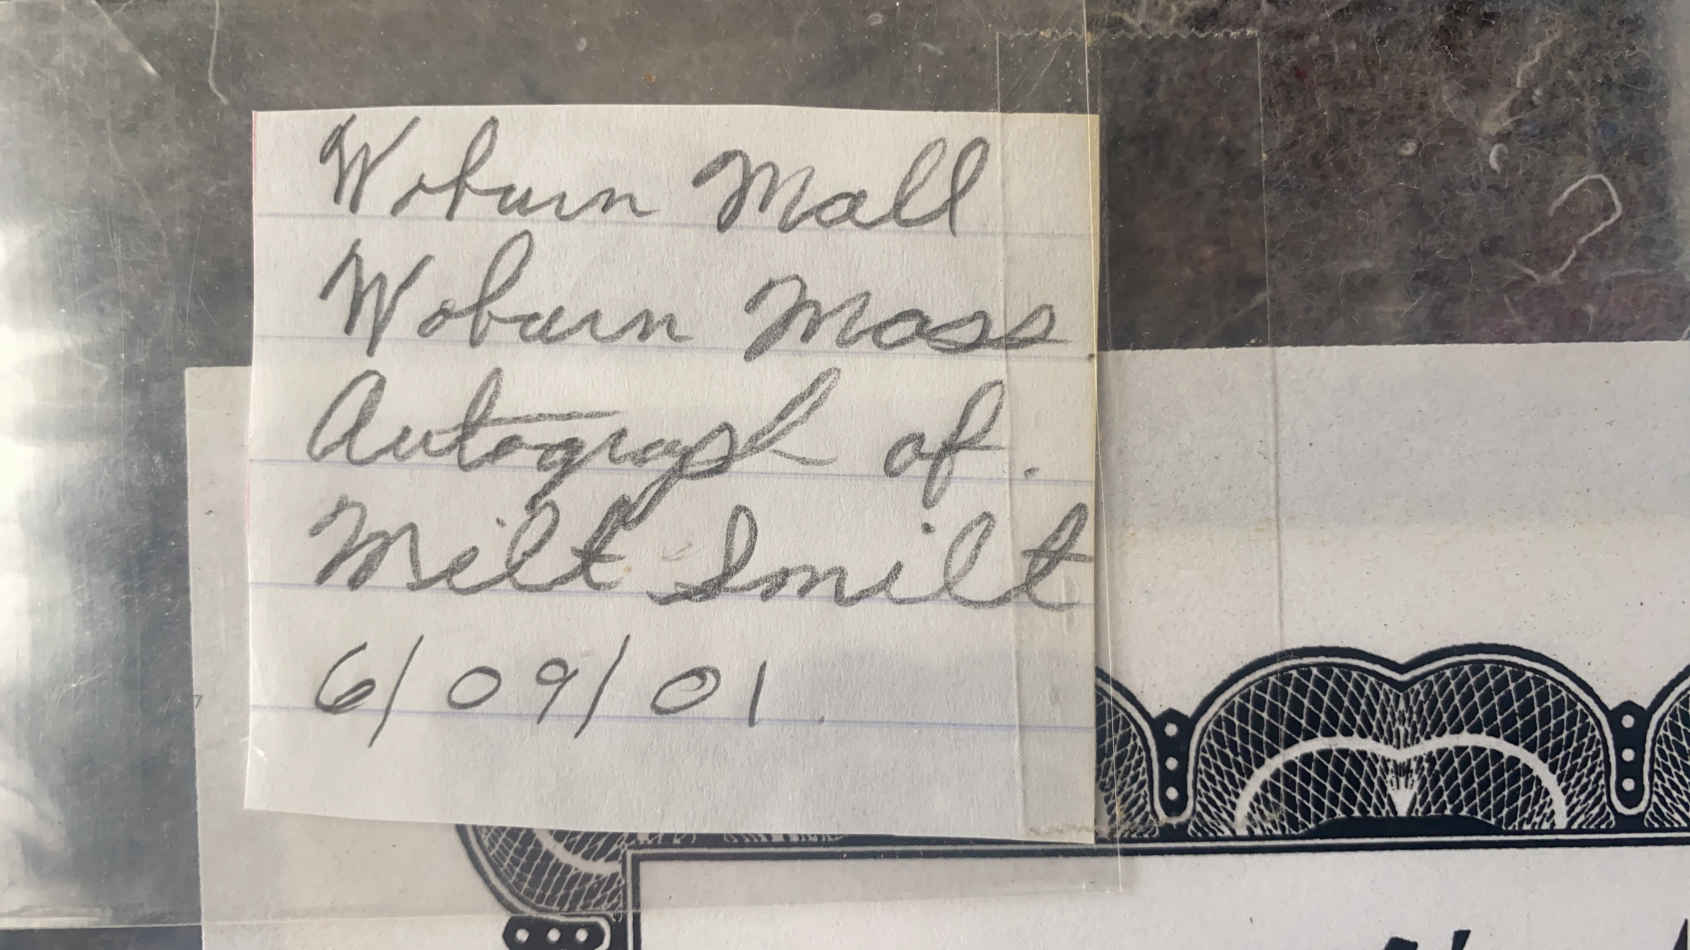 Woburn Mall
Woburn Mass
Autograph of.
Milt Smilt
6/09/01